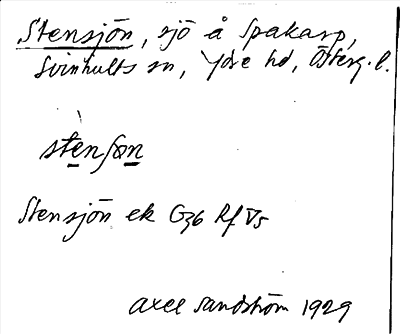 Stensjön, sjö å Spakarp,
Svinhults sn, Ydre hd, Österg. l.
stenſøn
Stensjön ek G36 Rf V5
Axel Sandström 1929